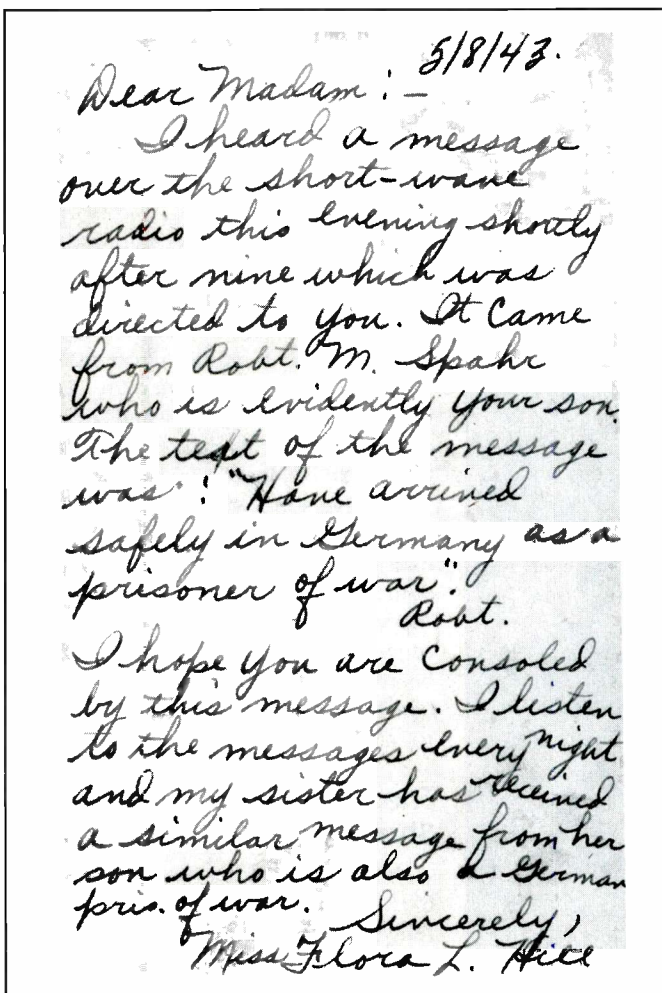 5/8/43.
Dear Madam : –
I heard a message
over the short-wave
radio this evening shortly
after nine which was
directed to you. It came
from Robt. M. Spahr
who is evidently your son.
The text of the message
was : "Have arrived
safely in Germany as a
prisoner of war".
Robt.
I hope you are consoled
by this message. I listen
to the messages every night
and my sister has received
a similar message from her
son who is also a German
pris. of war.
Sincerely,
Miss Flora L. Hill